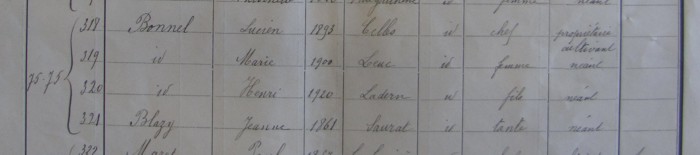 318 Bonnel Lucien 1893 id chef propriétaire
cultivant
319 id Marie 1900 Leuc id femme néant
75-75
320 id Henri 1920 Ladern id fils néant
321 Blazy Jeanne 1861 Saurat id tante néant
322